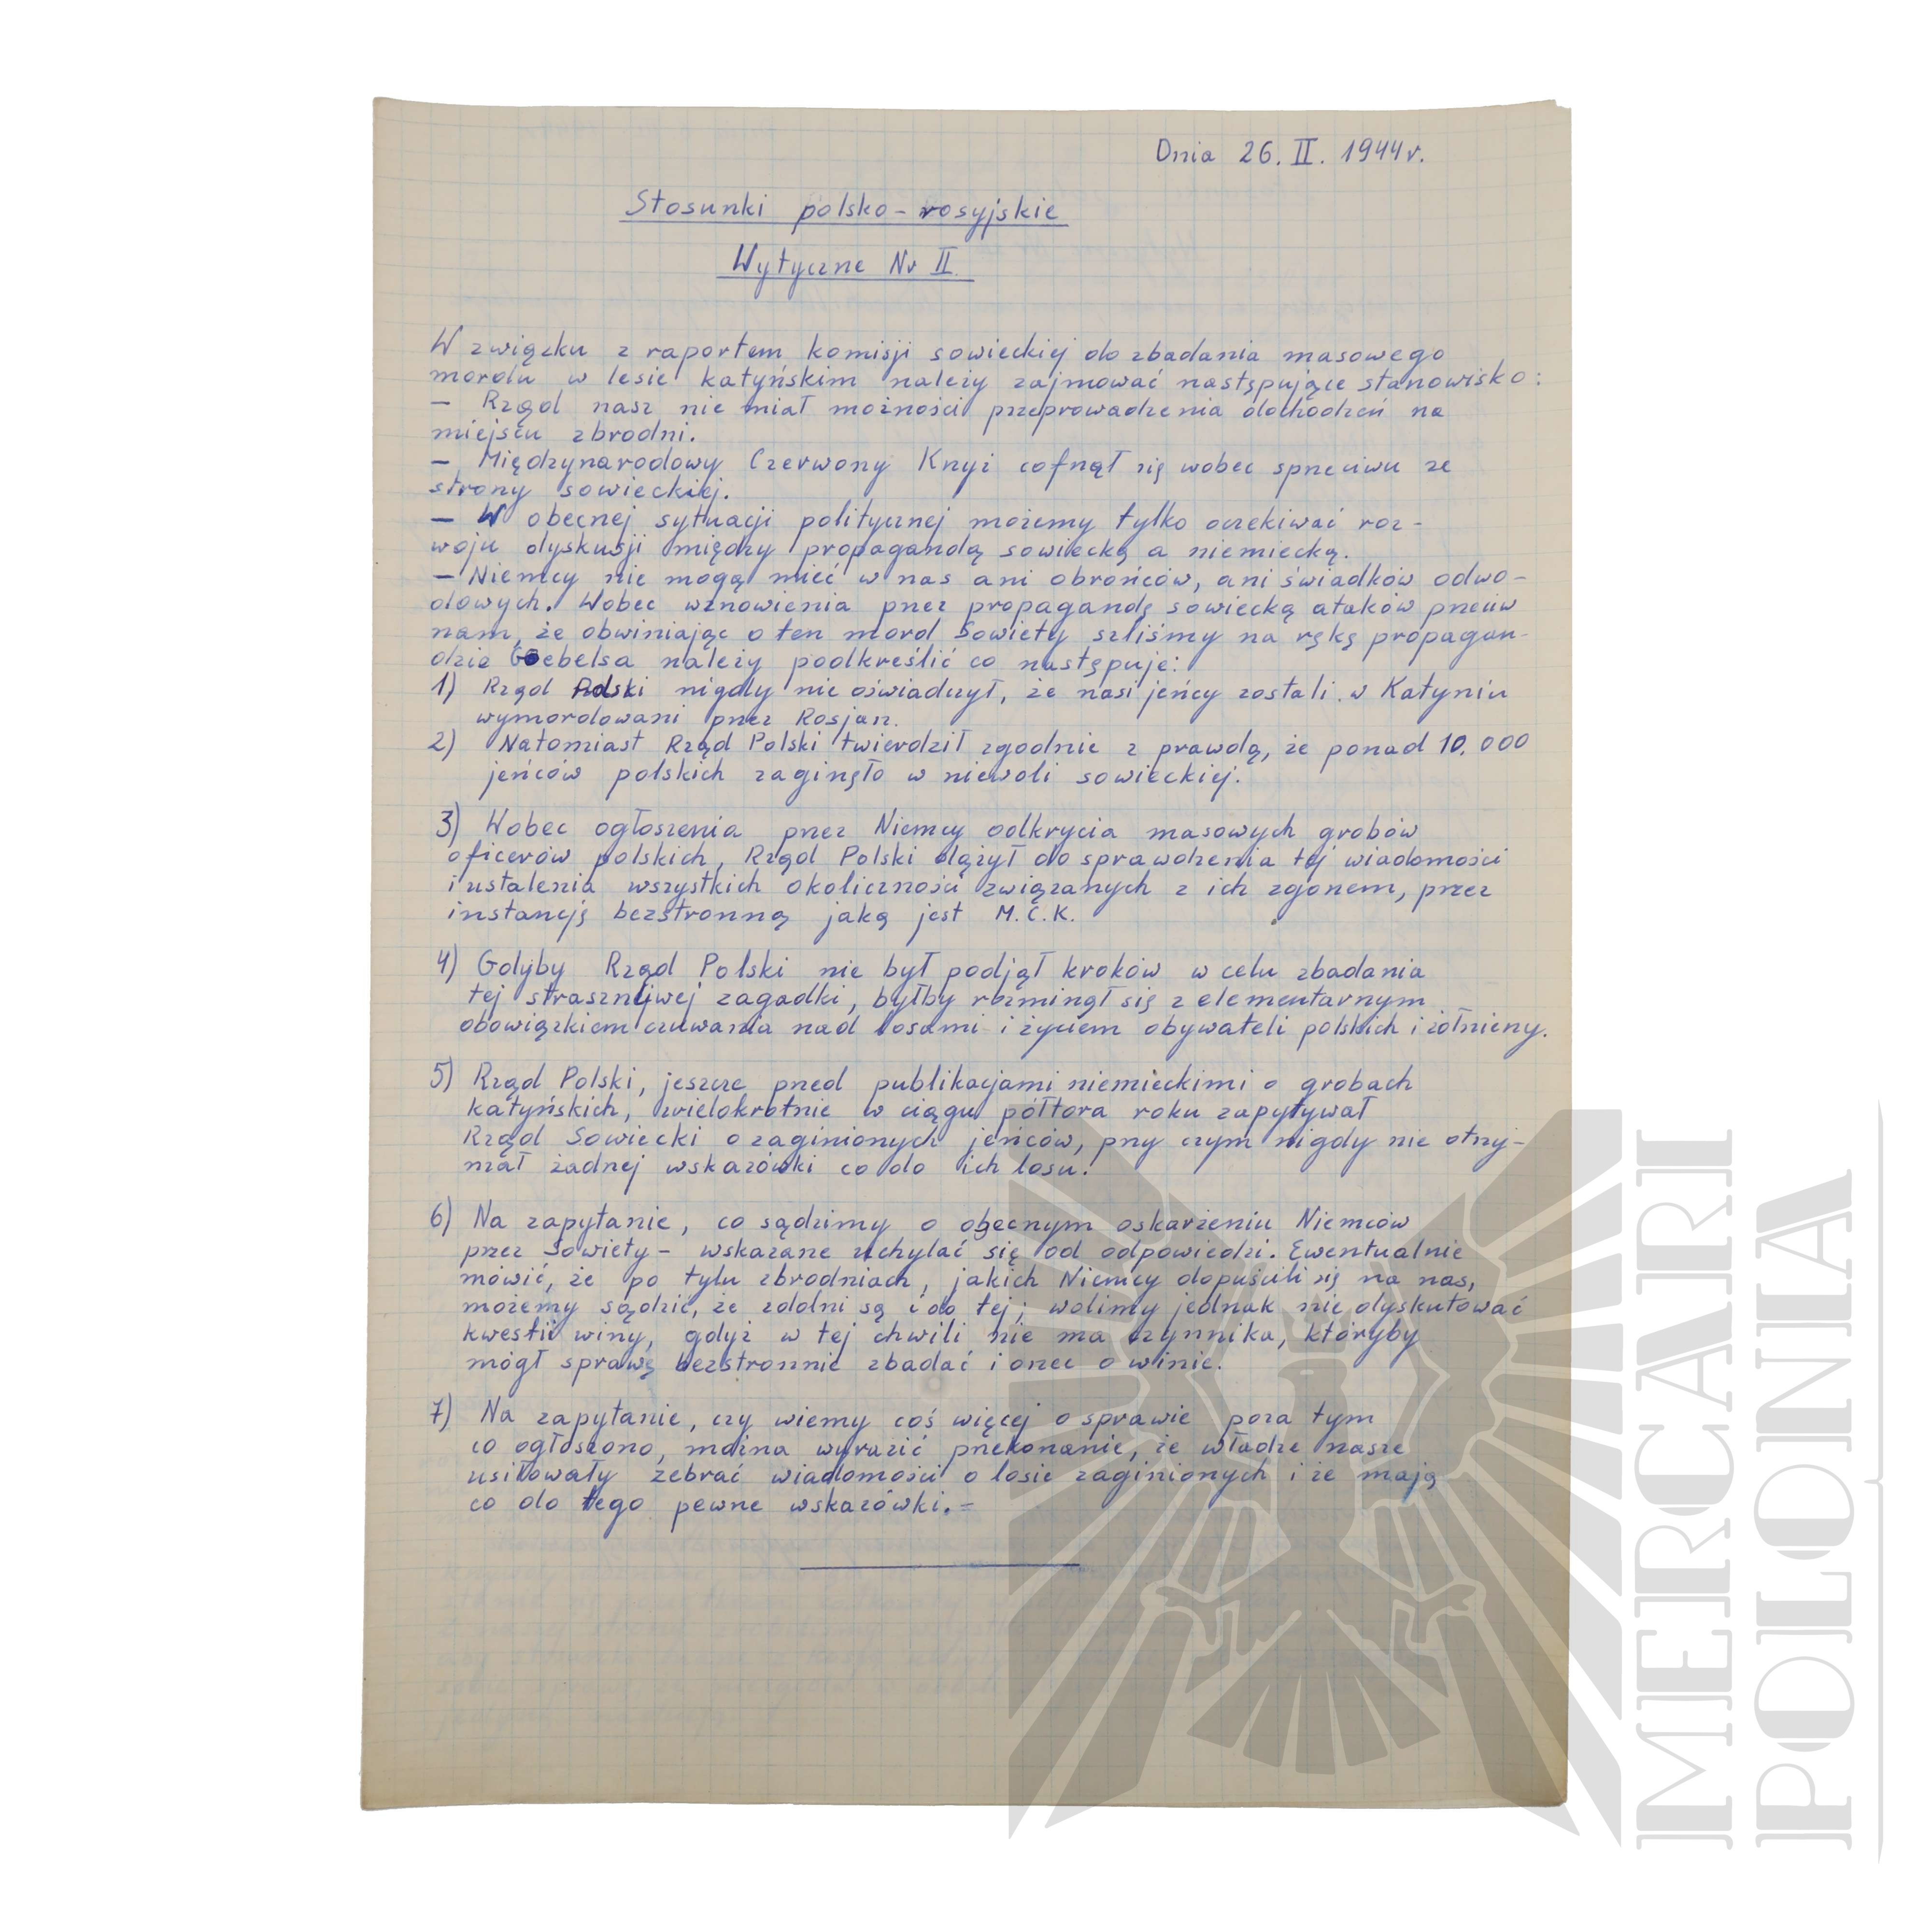 Dnia 26. II. 1944 r.
Stosunki polsko-rosyjskie
Wytyczne Nr II.
W związku z raportem komisji sowieckiej do zbadania masowego
mordu w lesie katyńskim należy zajmować następujące stanowisko:
– Rząd nasz nie miał możności przeprowadzenia dochodzeń na
miejscu zbrodni.
– Międzynarodowy Czerwony Krzyż cofnął się wobec sprzeciwu ze
strony sowieckiej.
– W obecnej sytuacji politycznej możemy tylko oczekiwać roz-
woju dyskusji między propagandą sowiecką a niemiecką.
– Niemcy nie mogą mieć w nas ani obrońców, ani świadków odwo-
dowych. Wobec wznowienia przez propagandę sowiecką ataków przeciw
nam, że obwiniając o ten mord Sowiety szliśmy na rękę propagan-
dzie Goebelsa należy podkreślić co następuje:
1) Rząd Polski nigdy nie oświadczył, że nasi jeńcy zostali w Katyniu
wymordowani przez Rosjan.
2) Natomiast Rząd Polski twierdził zgodnie z prawdą, że ponad 10.000
jeńców polskich zaginęło w niewoli sowieckiej.
3) Wobec ogłoszenia przez Niemcy odkrycia masowych grobów
oficerów polskich, Rząd Polski dążył do sprawdzenia tej wiadomości
i ustalenia wszystkich okoliczności związanych z ich zgonem, przez
instancję bezstronną jaką jest M.C.K.
4) Gdyby Rząd Polski nie był podjął kroków w celu zbadania
tej straszliwej zagadki, byłby rozminął się z elementarnym
obowiązkiem czuwania nad losami i życiem obywateli polskich i żołnierzy.
5) Rząd Polski, jeszcze przed publikacjami niemieckimi o grobach
katyńskich, wielokrotnie w ciągu półtora roku zapytywał
Rząd Sowiecki o zaginionych jeńców, przy czym nigdy nie otrzy-
mał żadnej wskazówki co do ich losu.
6) Na zapytanie, co sądzimy o obecnym oskarżeniu Niemców
przez Sowiety – wskazane uchylać się od odpowiedzi. Ewentualnie
mówić, że po tylu zbrodniach, jakich Niemcy dopuścili się na nas,
możemy sądzić, że zdolni są i do tej; wolimy jednak nie dyskutować
kwestii winy, gdyż w tej chwili nie ma czynnika, któryby
mógł sprawę bezstronnie zbadać i orzec o winie.
7) Na zapytanie, czy wiemy coś więcej o sprawie poza tym
co ogłoszono, można wyrazić przekonanie, że władze nasze
usiłowały zebrać wiadomości o losie zaginionych i że mają
co do tego pewne wskazówki. =
MERCARI
POLONIA